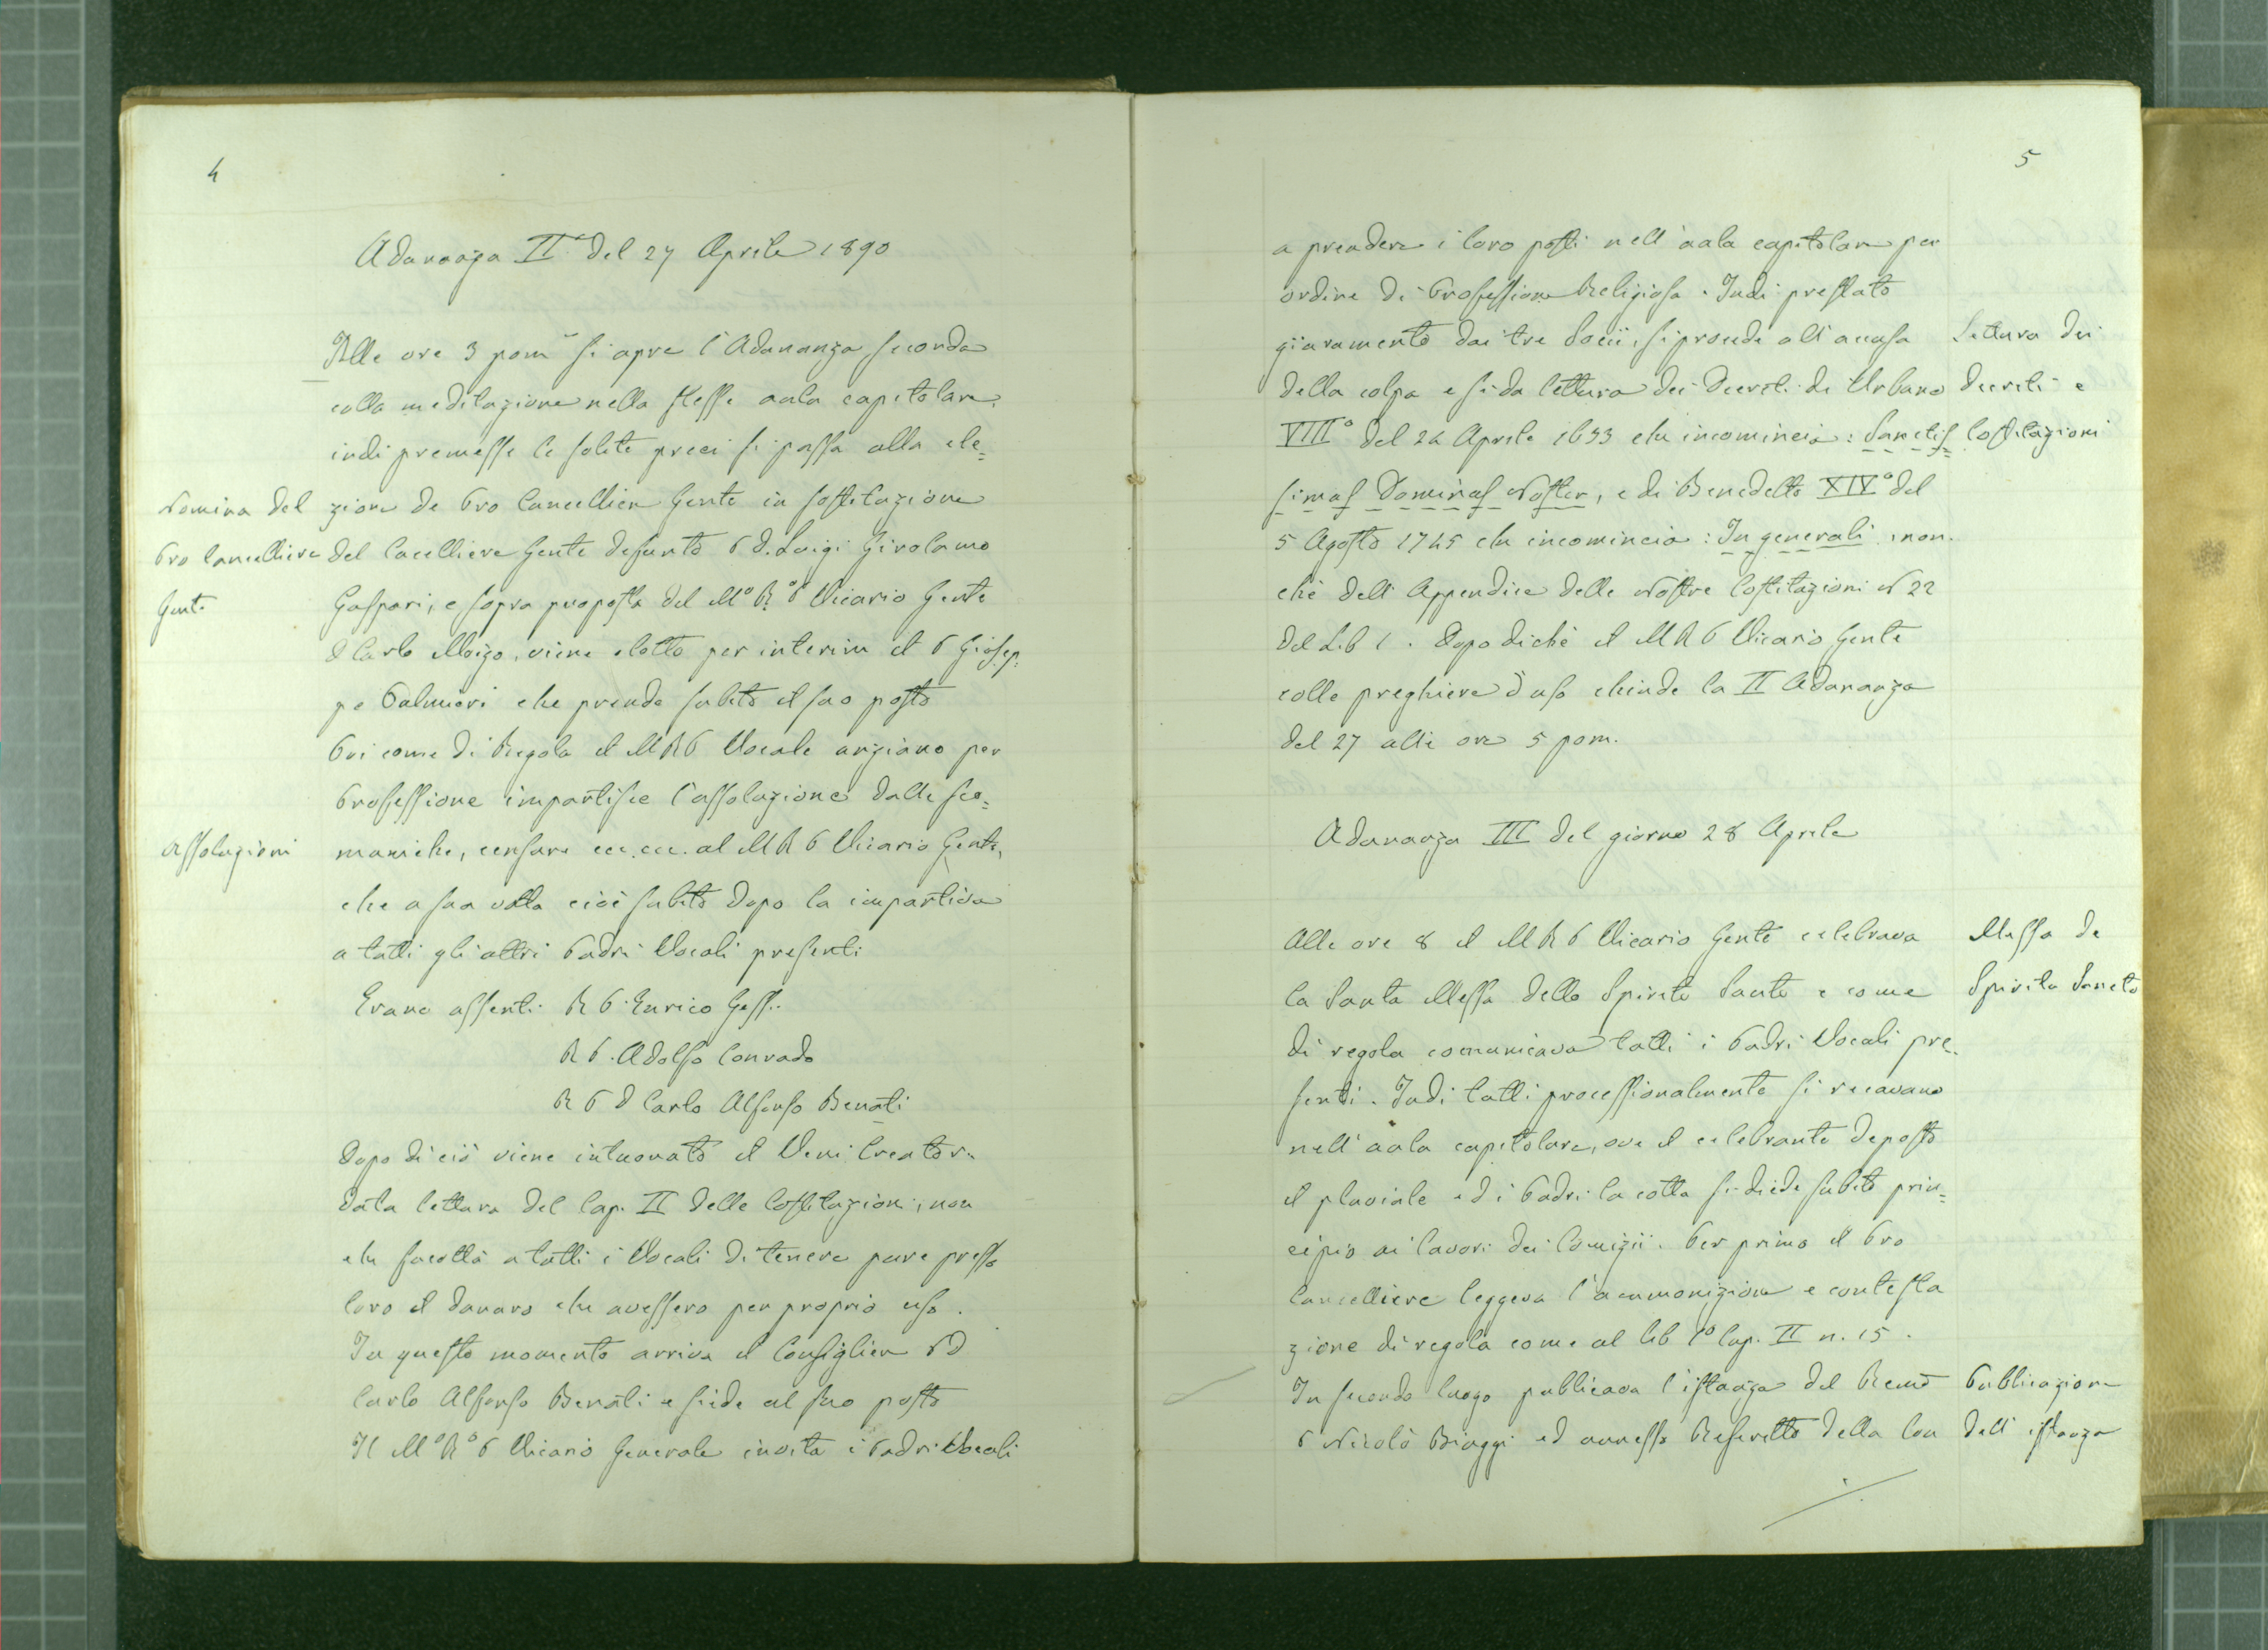 4
Adunanza IIª del 27 Aprile 1890
Alle ore 3 pomᵉ si apre l'Adunanza seconda
colla meditazione nella stessa aula capitolare,
indi premesse le solite preci si passa alla ele=
Nomina del
zione de Pro Cancelliere Genle in sostituzione
Pro Cancelliere
del Cacelliere Genle defunto P. D. Luigi Girolamo
Genle
Gaspari, e sopra proposta del M.º R.º P Vicario Genle
D Carlo Moizo, viene eletto per interim il P Giusep=
pe Palmieri che prende subito il suo posto
Poi come di Regola il M R P Vocale anziano per
Professione impartisce l'assoluzione dalle sco=
Assoluzioni
muniche, censure ecc. ecc. al M R P Vicario Genle,
che a sua volta cioè subito dopo la impartiva
a tutti gli altri Padri Vocali presenti
Erano assenti R P. Enrico Gessi
R P. Adolfo Conrado
R P D Carlo Alfonso Benati
Dopo di ciò viene intuonato il Veni Creator.
Data lettura del Cap. II delle Costituzioni, non
che facoltà a tutti i Vocali di tenere pure presso
loro il danaro che avessero per proprio uso.
In questo momento arriva il Consigliere P D
Carlo Alfonso Benati e siede al suo posto
Il Mº Rº P Vicario Generale invita i Padri Vocali
5
a prendere i loro posti nell'aula capitolare per
ordine di Professione Religiosa. Indi prestato
giuramento dai tre Socii, si procede all'accusa
Lettura dei
della colpa e si da lettura dei Decreti di Urbano
decreti e
VIIIº del 24 Aprile 1633 che incomincia: Sanctis
Costituzioni
simus Dominus Noster, e di Benedetto XIVº del
5 Agosto 1745 che incomincia: In generali, non=
chè dell'Appendice delle Nostre Costituzioni N 22
del Lib 1. Dopo dichè il M R P Vicario Genle
colle preghiere d'uso chiude la II Adunanza
del 27 alle ore 5 pom.
Adunanza III del giorno 28 Aprile
Alle ore 8 il M R P Vicario Genle celebrava
Messa de
la Santa Messa dello Spirito Santo e come
Spiritu Sancto
di regola comunicava tutti i Padri Vocali pre=
senti. Indi tutti processionalmente si recavano
nell'aula capitolare, ove il celebrante deposto
il pluviale ed i Padri la cotta si diede subito prin=
cipio ai lavori dei Comizii. Per primo il Pro
Cancelliere leggeva l'ammonizione e contesta
zione di regola come al lib 1º Cap. II n. 15.
In secondo luogo publicava l'istanza del Revmo
Publicazione
P Nicolò Biaggi ed annesso Rescritto della Con
dell'istanza